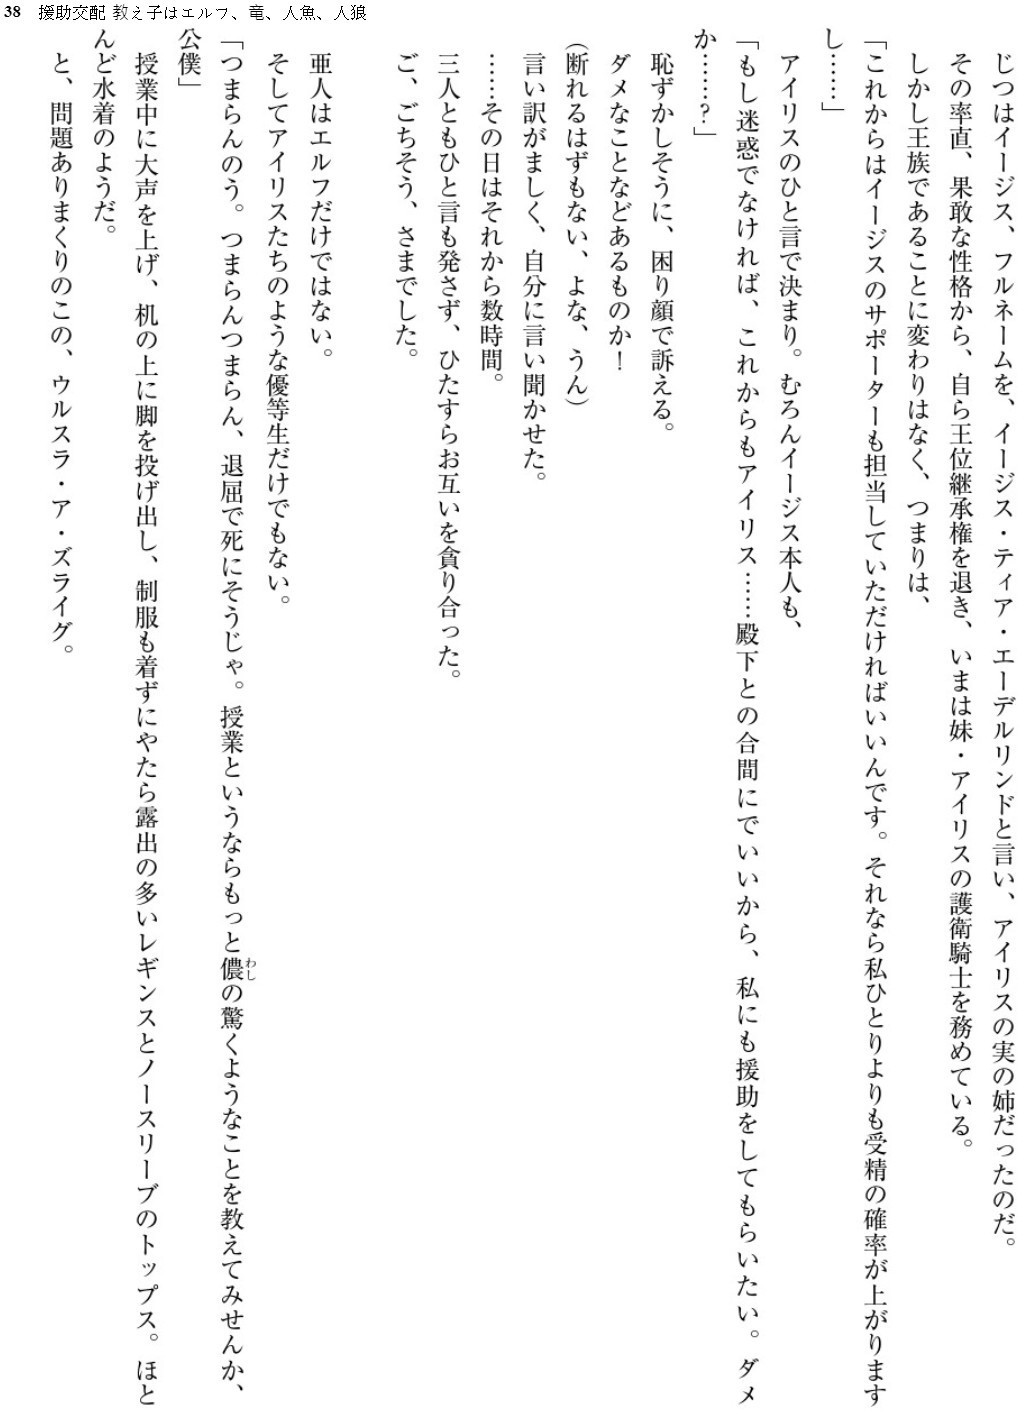 38 援助交配 教え子はエルフ、竜、人魚、人狼
じつはイージス、フルネームを、イージス・ティア・エーデルリンドと言い、アイリスの実の姉だったのだ。
その率直、果敢な性格から、自ら王位継承権を退き、いまは妹・アイリスの護衛騎士を務めている。
しかし王族であることに変わりはなく、つまりは、
「これからはイージスのサポーターも担当していただければいいんです。それなら私ひとりよりも受精の確率が上がります
し……」
アイリスのひと言で決まり。むろんイージス本人も、
「もし迷惑でなければ、これからもアイリス……殿下との合間にでいいから、私にも援助をしてもらいたい。ダメ
か……？」
恥ずかしそうに、困り顔で訴える。
ダメなことなどあるものか！
（断れるはずもない、よな、うん）
言い訳がましく、自分に言い聞かせた。
……その日はそれから数時間。
三人ともひと言も発さず、ひたすらお互いを貪り合った。
ご、ごちそう、さまでした。
亜人はエルフだけではない。
そしてアイリスたちのような優等生だけでもない。
「つまらんのう。つまらんつまらん、退屈で死にそうじゃ。授業というならもっと儂わしの驚くようなことを教えてみせんか、
公僕」
授業中に大声を上げ、机の上に脚を投げ出し、制服も着ずにやたら露出の多いレギンスとノースリーブのトップス。ほと
んど水着のようだ。
と、問題ありまくりのこの、ウルスラ・ア・ズライグ。